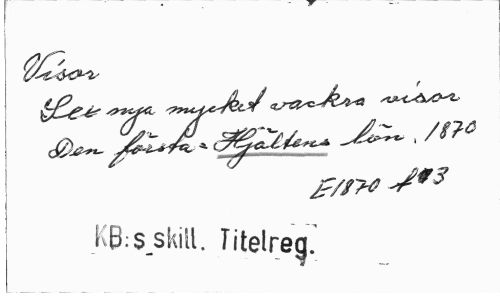 Visor
Sex nya mycket vackra visor
Den första = Hjältens bön. 1870
E1870 f 3
KB:s skill. Titelreg.